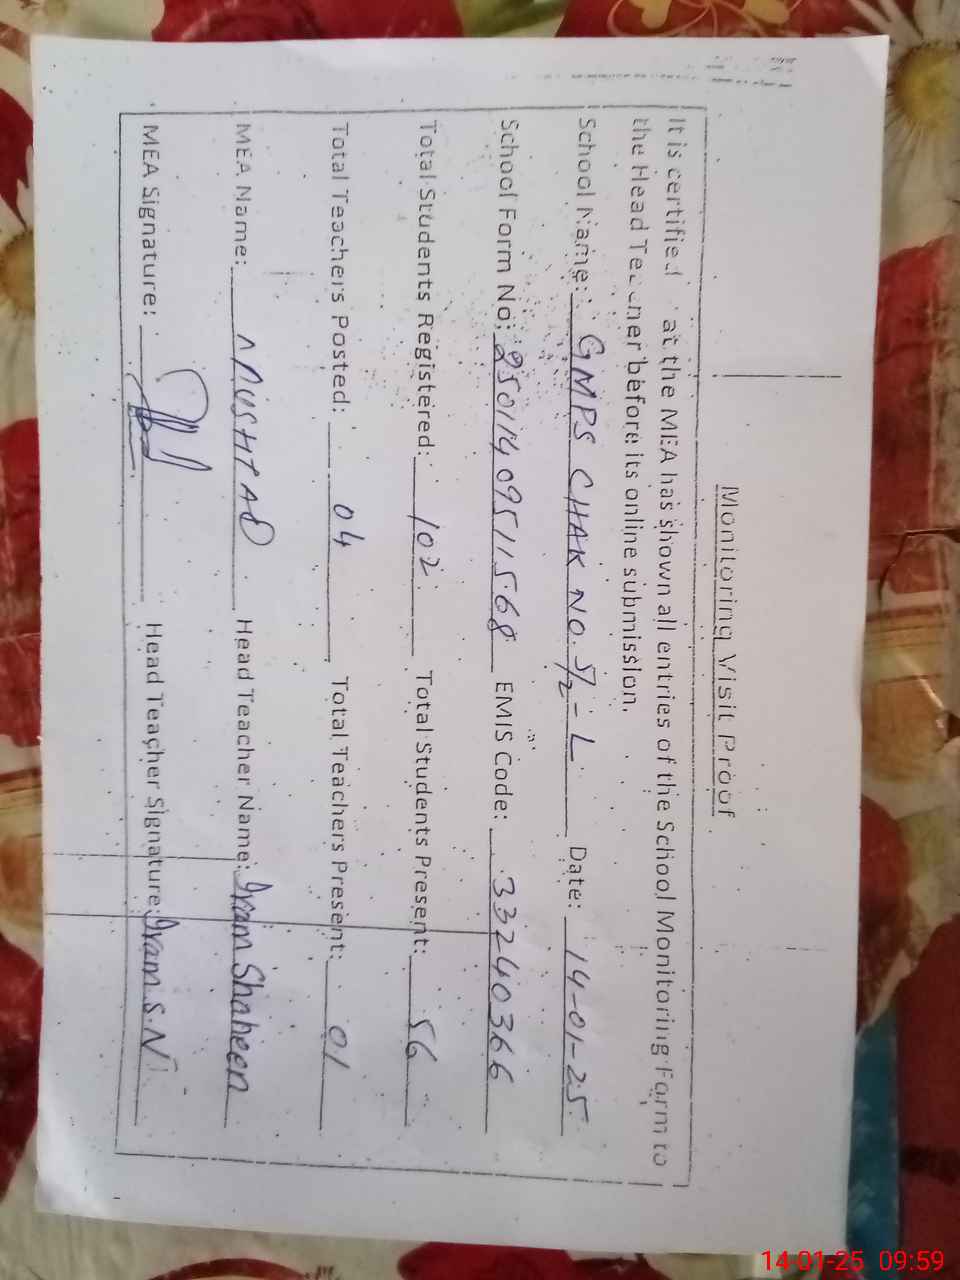 Monitoring Visit Proof
It is certified at the MEA has shown all entries of the School Monitoring Form to
the Head Teacher before its online submission.
School Name: GMPS CHAK NO. 5/2-L Date: 14-01-25
School Form No: 25011409511568 EMIS Code: 33240366
Total Students Registered: 102 Total Students Present: 56
Total Teachers Posted: 04 Total Teachers Present: 01
MEA Name: MUSHTAQ Head Teacher Name: Iram Shaheen
MEA Signature: Head Teacher Signature: Iram S.N
14-01-25 09:59